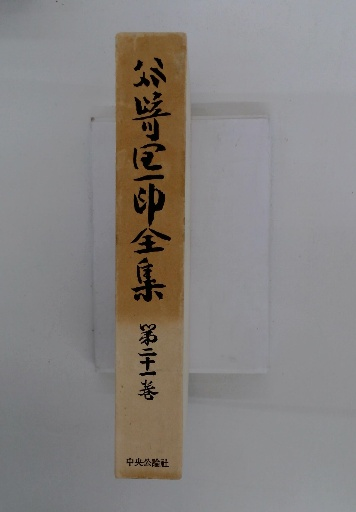 谷崎潤一郎全集
第二十一巻
中央公論社